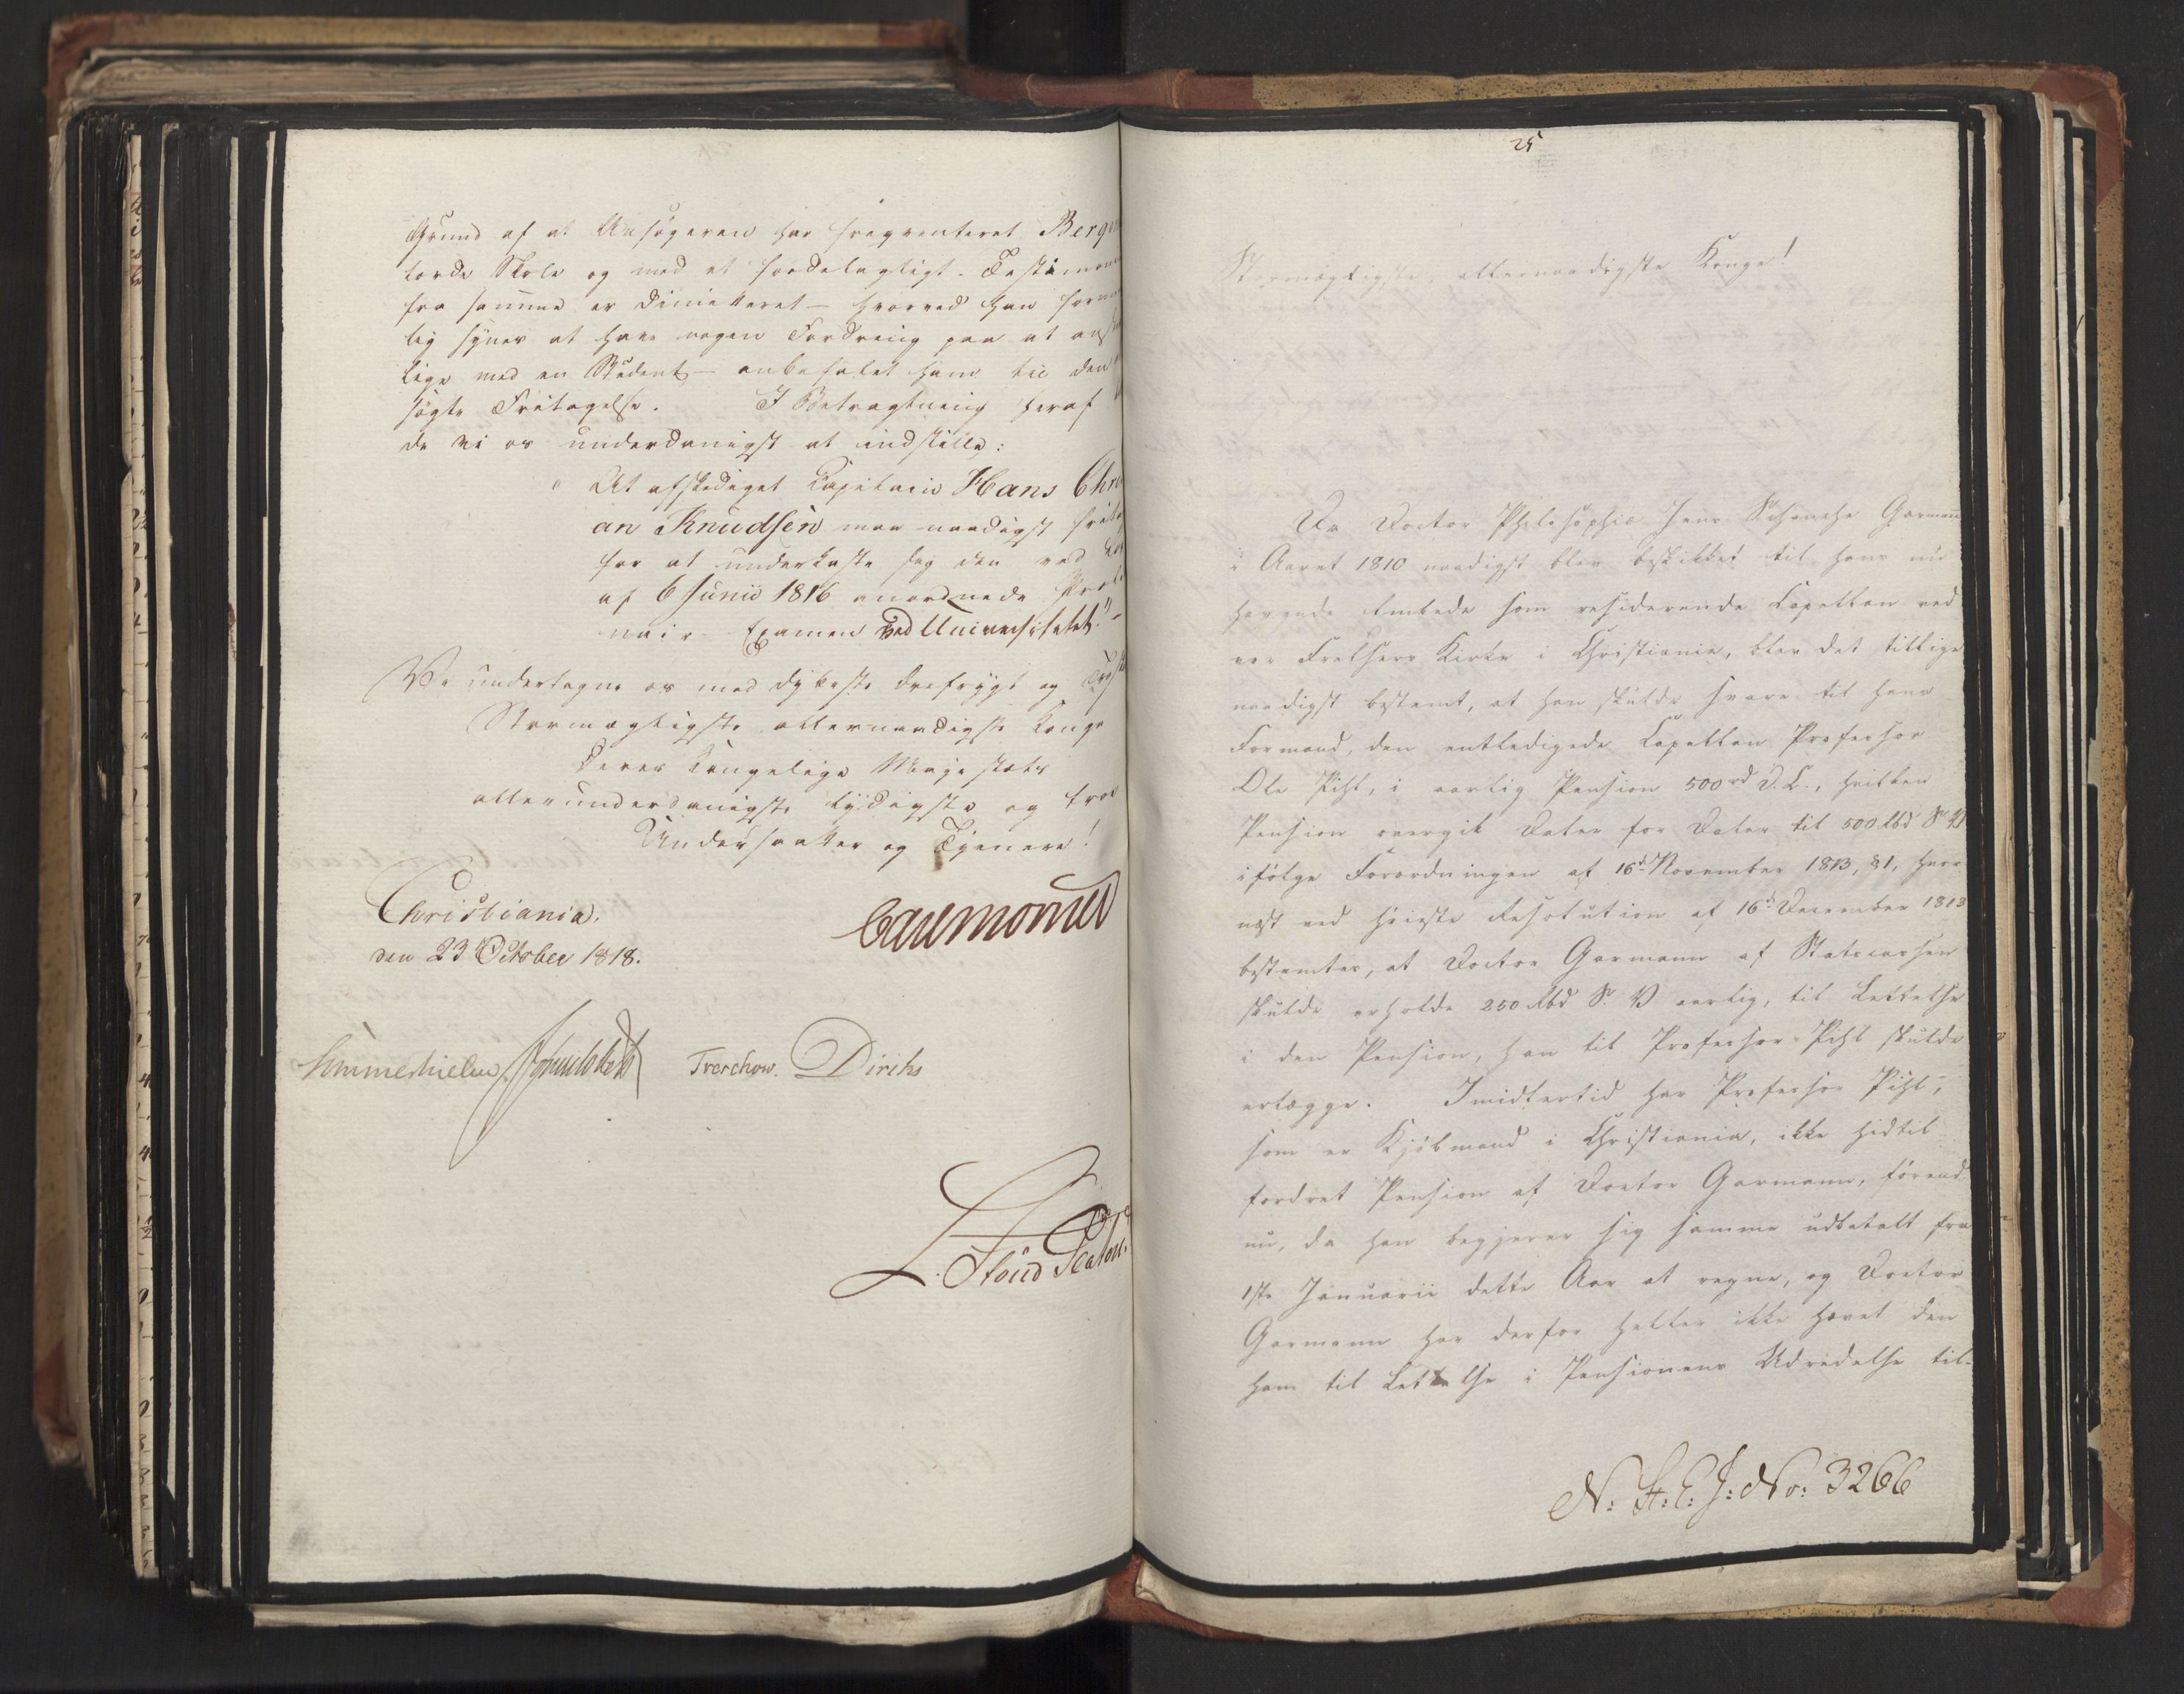 Grund af at Ansøgeren har freqventeret Bergen
lærde Skole og med et fordelagtigt Testimoni
fra samme er dimitteret – hvorved han forme
lig synes at have nogen Fordring paa at ans
lige med en Student – anbefalet ham til den
søgte Fritagelse. I Betragtning heraf
de vi os underdanigst at indstille:
"At afskediget Capitain Hans Chri
an Knudsen maa naadigst frita
for at underkaste sig den ved Lov
af 6 Junii 1816 anordnede Præli
nair-Examen ved Universitetet."
Vi undertegne os med dybeste Ærefrygt og
Stormægtigste allernaadigste Konge
Deres Kongelige Majestæts
allerunderdanigste lydigste og troe
Undersaatter og Tjenere!
Christiania,
den 23 October 1818.
Carl Mörner
Sommerhielm Treschow. Dirihs
L. Stoud Platou.
25
Stormægtigste, allernaadigste Konge!
Da Doctor Philosophiæ Jens Schanche Garmann
i Aaret 1810 naadigst blev beskikket til hans nu
havende Embede som residerende Capellan ved
vor Frelsers Kirke i Christiania, blev det tillige
naadigst bestemt, at han skulde svare til hans
Formand, den entledigede Capellan Professor
Ole Pihl, i aarlig Pension 500 rd D.C., hvilken
Pension overgik Daler for Daler til 500 Rbd S. V
ifølge Forordningen af 16d November 1813, §1, hvor
næst ved høieste Resolution af 16d December 1813
bestemtes, at Doctor Garmann af Statscassen
skulde erholde 250 Rbd S. V aarlig, til Lettelse
i den Pension, han til Professor Pihl skulde
erlægge. Imidlertid har Professor Pihl,
som er Kjøbmand i Christiania, ikke hidtil
fordret Pension af Doctor Garmann, førend
nu, da han begjerer sig samme udbetalt fra
1ste Januarii dette Aar at regne, og Doctor
Garmann har derfor heller ikke hævet den
ham til Lettelse i Pensionens Udredelse til-
N: St: C: J: No: 3266